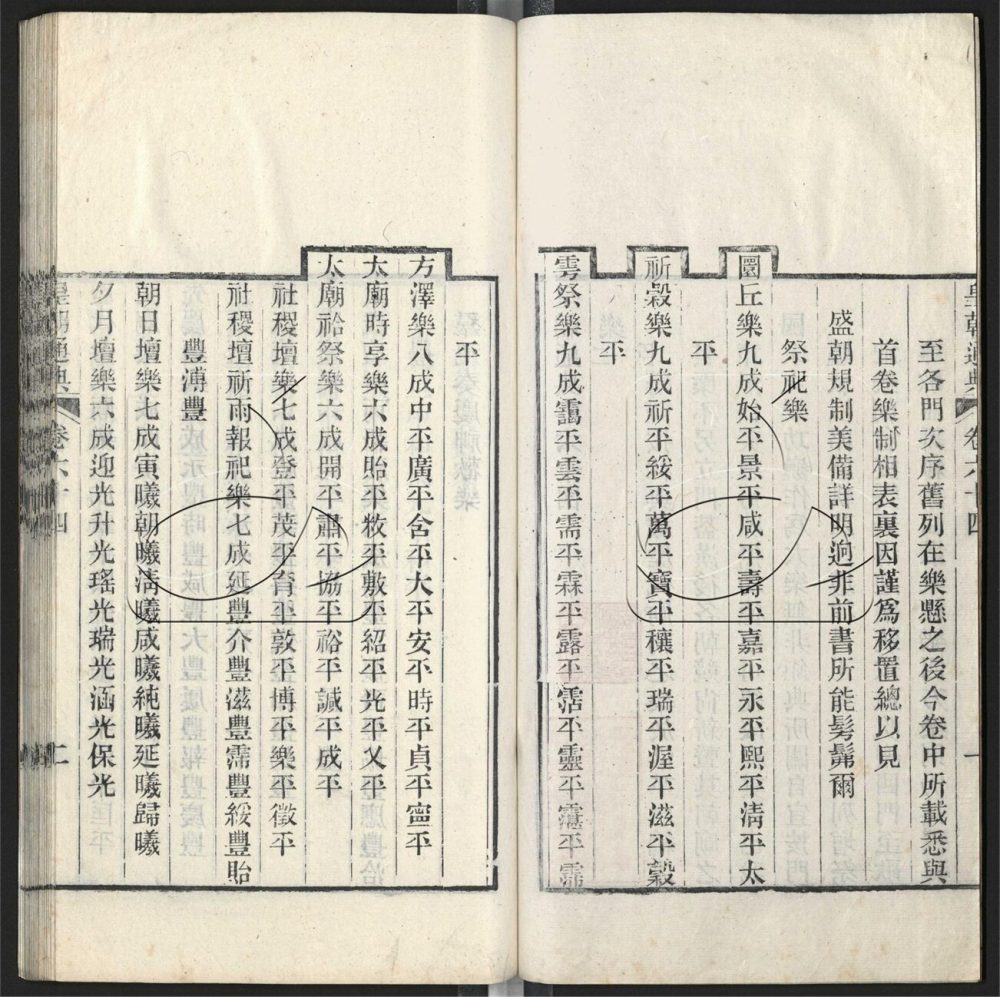 皇朝通典 卷六十四 一
至各門次序舊列在樂懸之後今卷中所載悉與
首卷樂制相表裏因謹爲移置總以見
盛朝規制美備詳明迥非前書所能髣髴爾
祭祀樂
圜丘樂九成始平景平咸平壽平嘉平永平熙平淸平太
平
祈穀樂九成祈平綏平萬平寶平穰平瑞平渥平滋平穀
平
雩祭樂九成靄平雲平需平霖平露平霑平靈平霮平霈
平
方澤樂八成中平廣平含平大平安平時平貞平寧平
太廟時享樂六成貽平敉平敷平紹平光平乂平
太廟祫祭樂六成開平肅平協平裕平諴平成平
社稷壇樂七成登平茂平育平敦平博平樂平徵平
社稷壇祈雨報祀樂七成延豐介豐滋豐霈豐綏豐貽
豐溥豐
朝日壇樂七成寅曦朝曦淸曦咸曦純曦延曦歸曦
夕月壇樂六成迎光升光瑤光瑞光涵光保光
皇朝通典 卷六十四 二